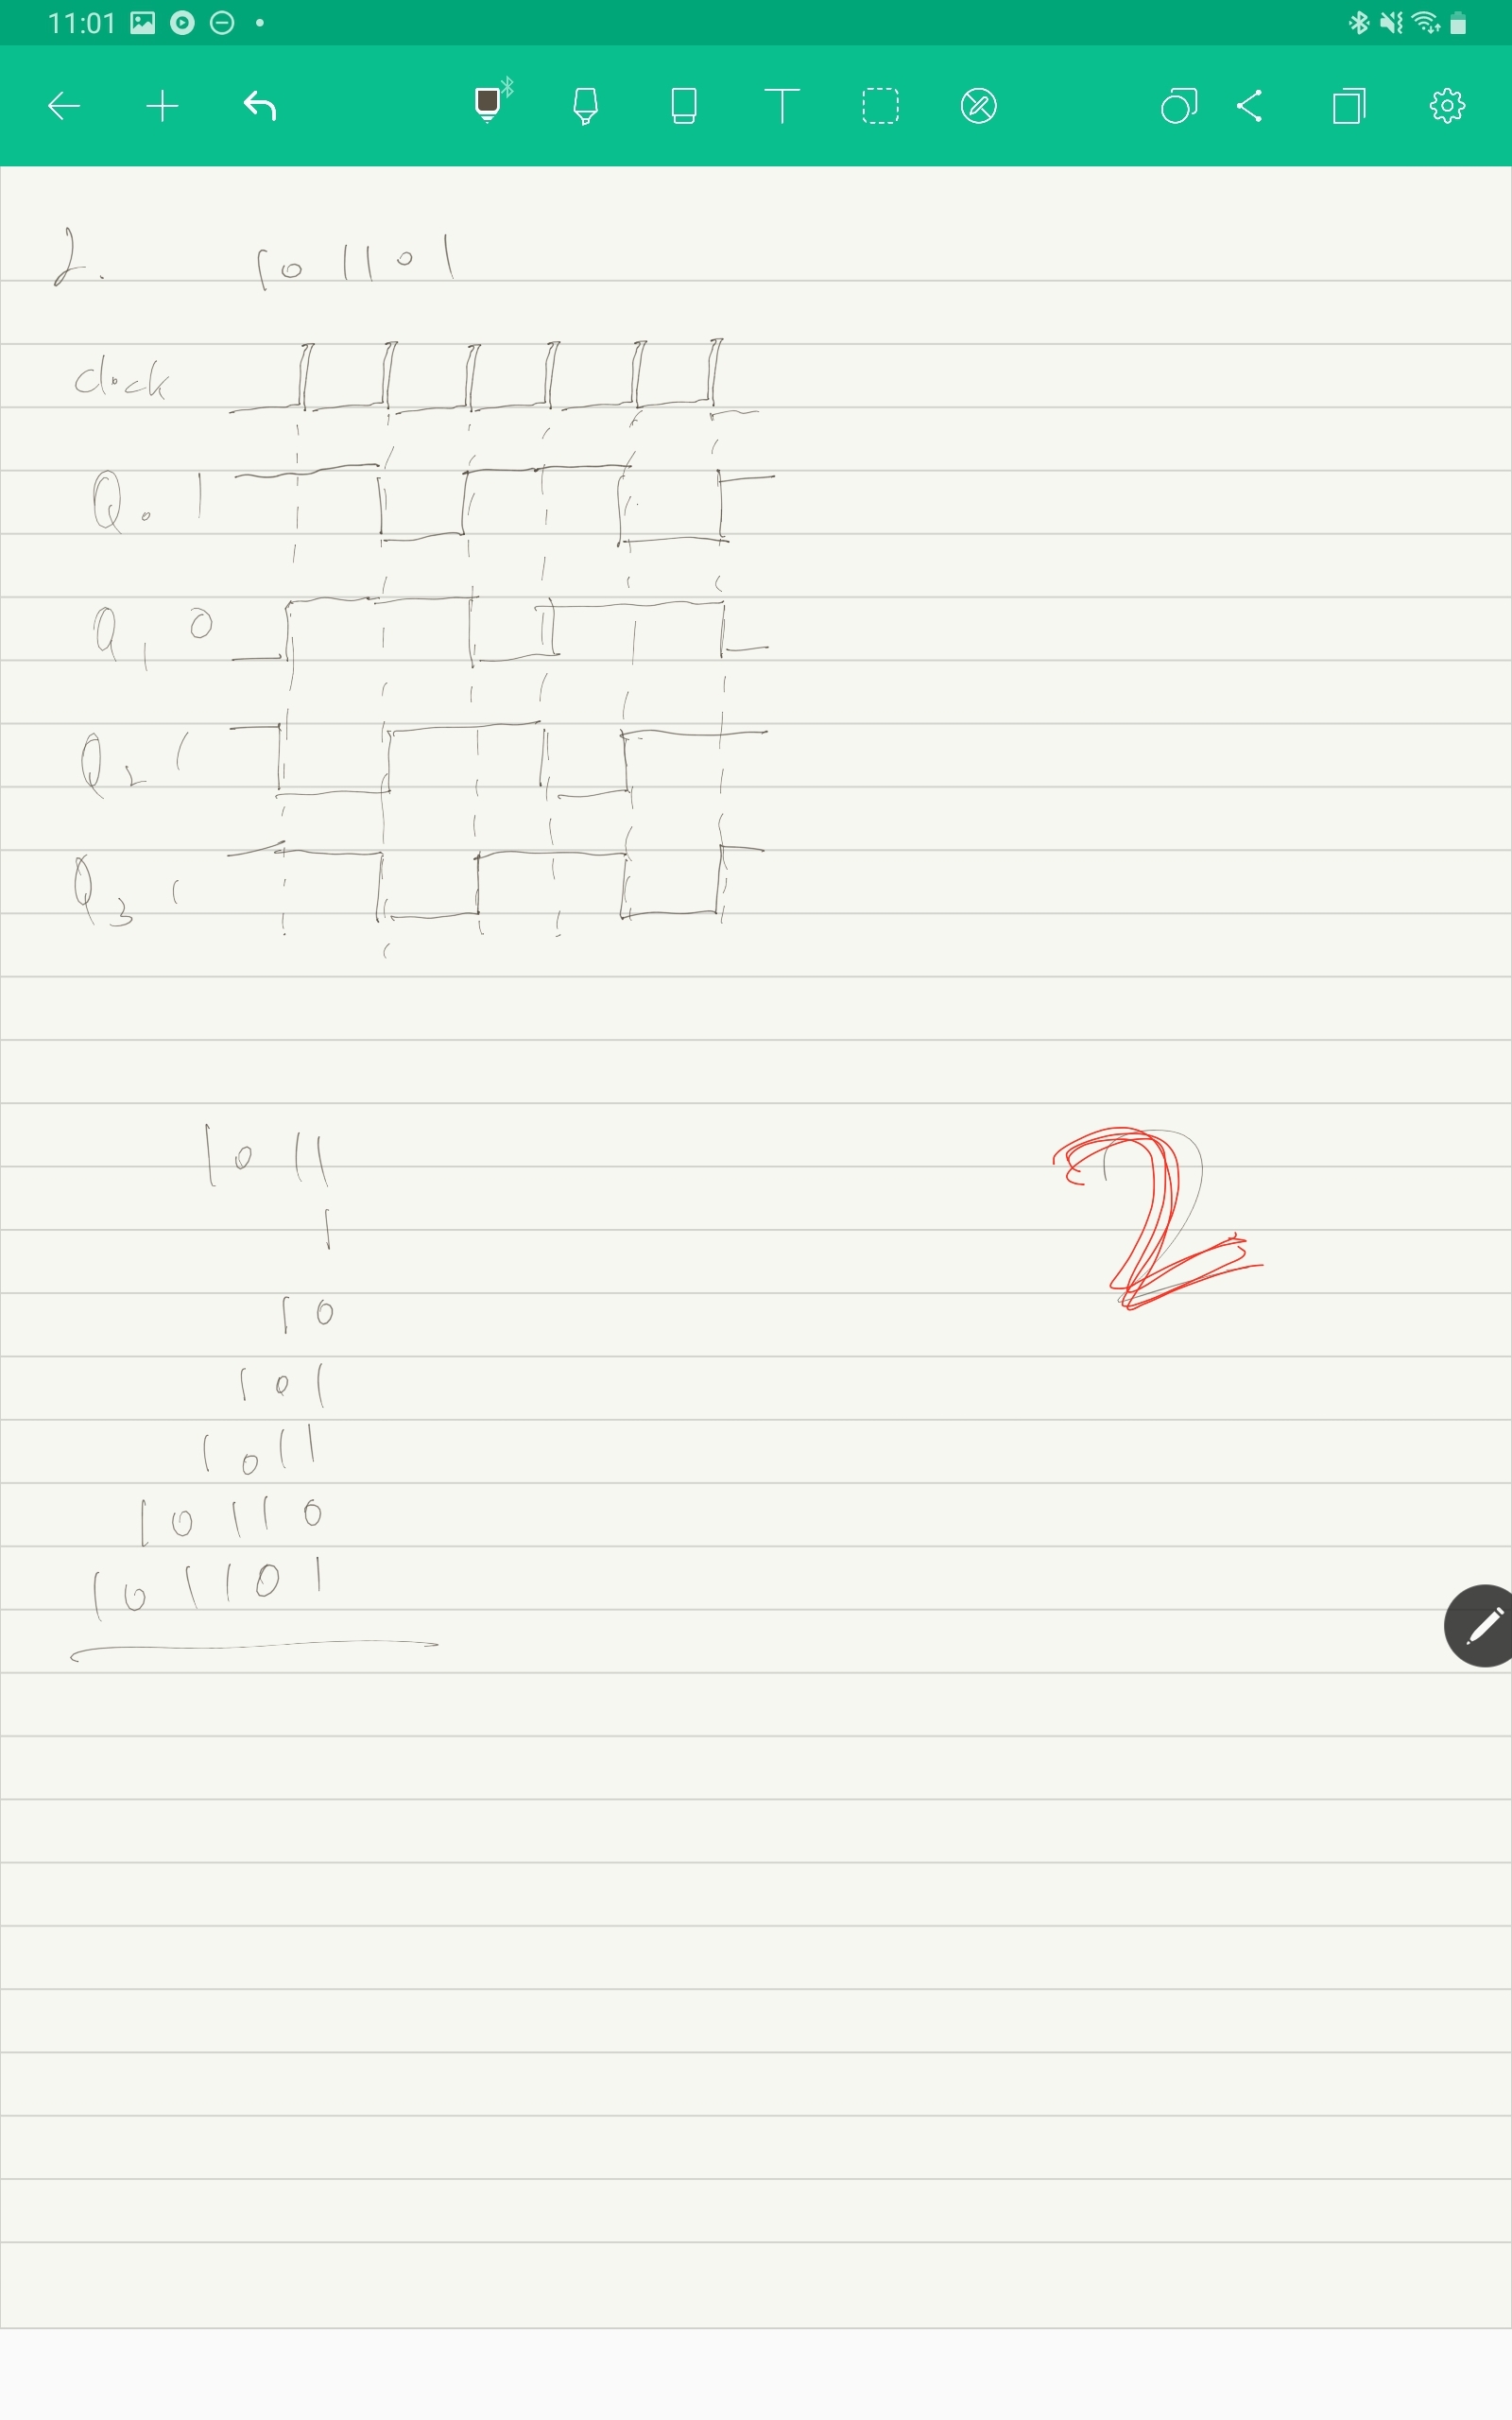 11:01
T
2. 101101
clock
Q0 1
Q1 0
Q2 1
Q3 1
1011
1
10
101
1011
10110
101101
2